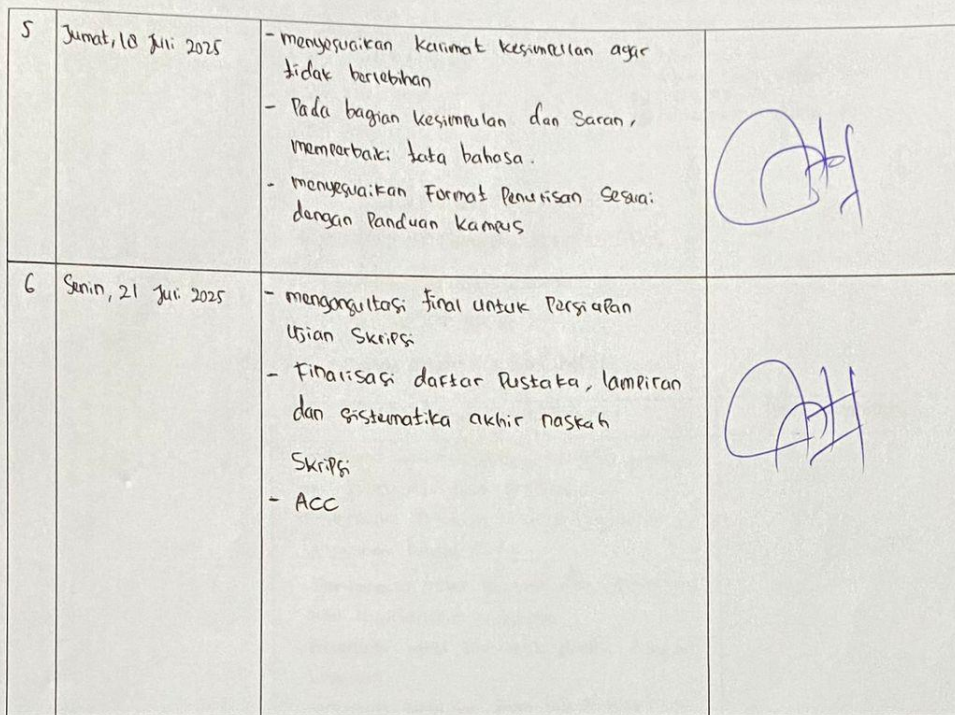 5
Jumat, 18 Juli 2025
- menyesuaikan kalimat kesimpulan agar
tidak berlebihan
- Pada bagian kesimpulan dan Saran,
memperbaiki tata bahasa.
- menyesuaikan Format Penulisan Sesuai
dengan Panduan Kampus
6
Senin, 21 Juli 2025
- mengonsultasi final untuk Persiapan
Ujian Skripsi
- Finalisasi daftar Pustaka, lampiran
dan sistematika akhir naskah
Skripsi
- ACC